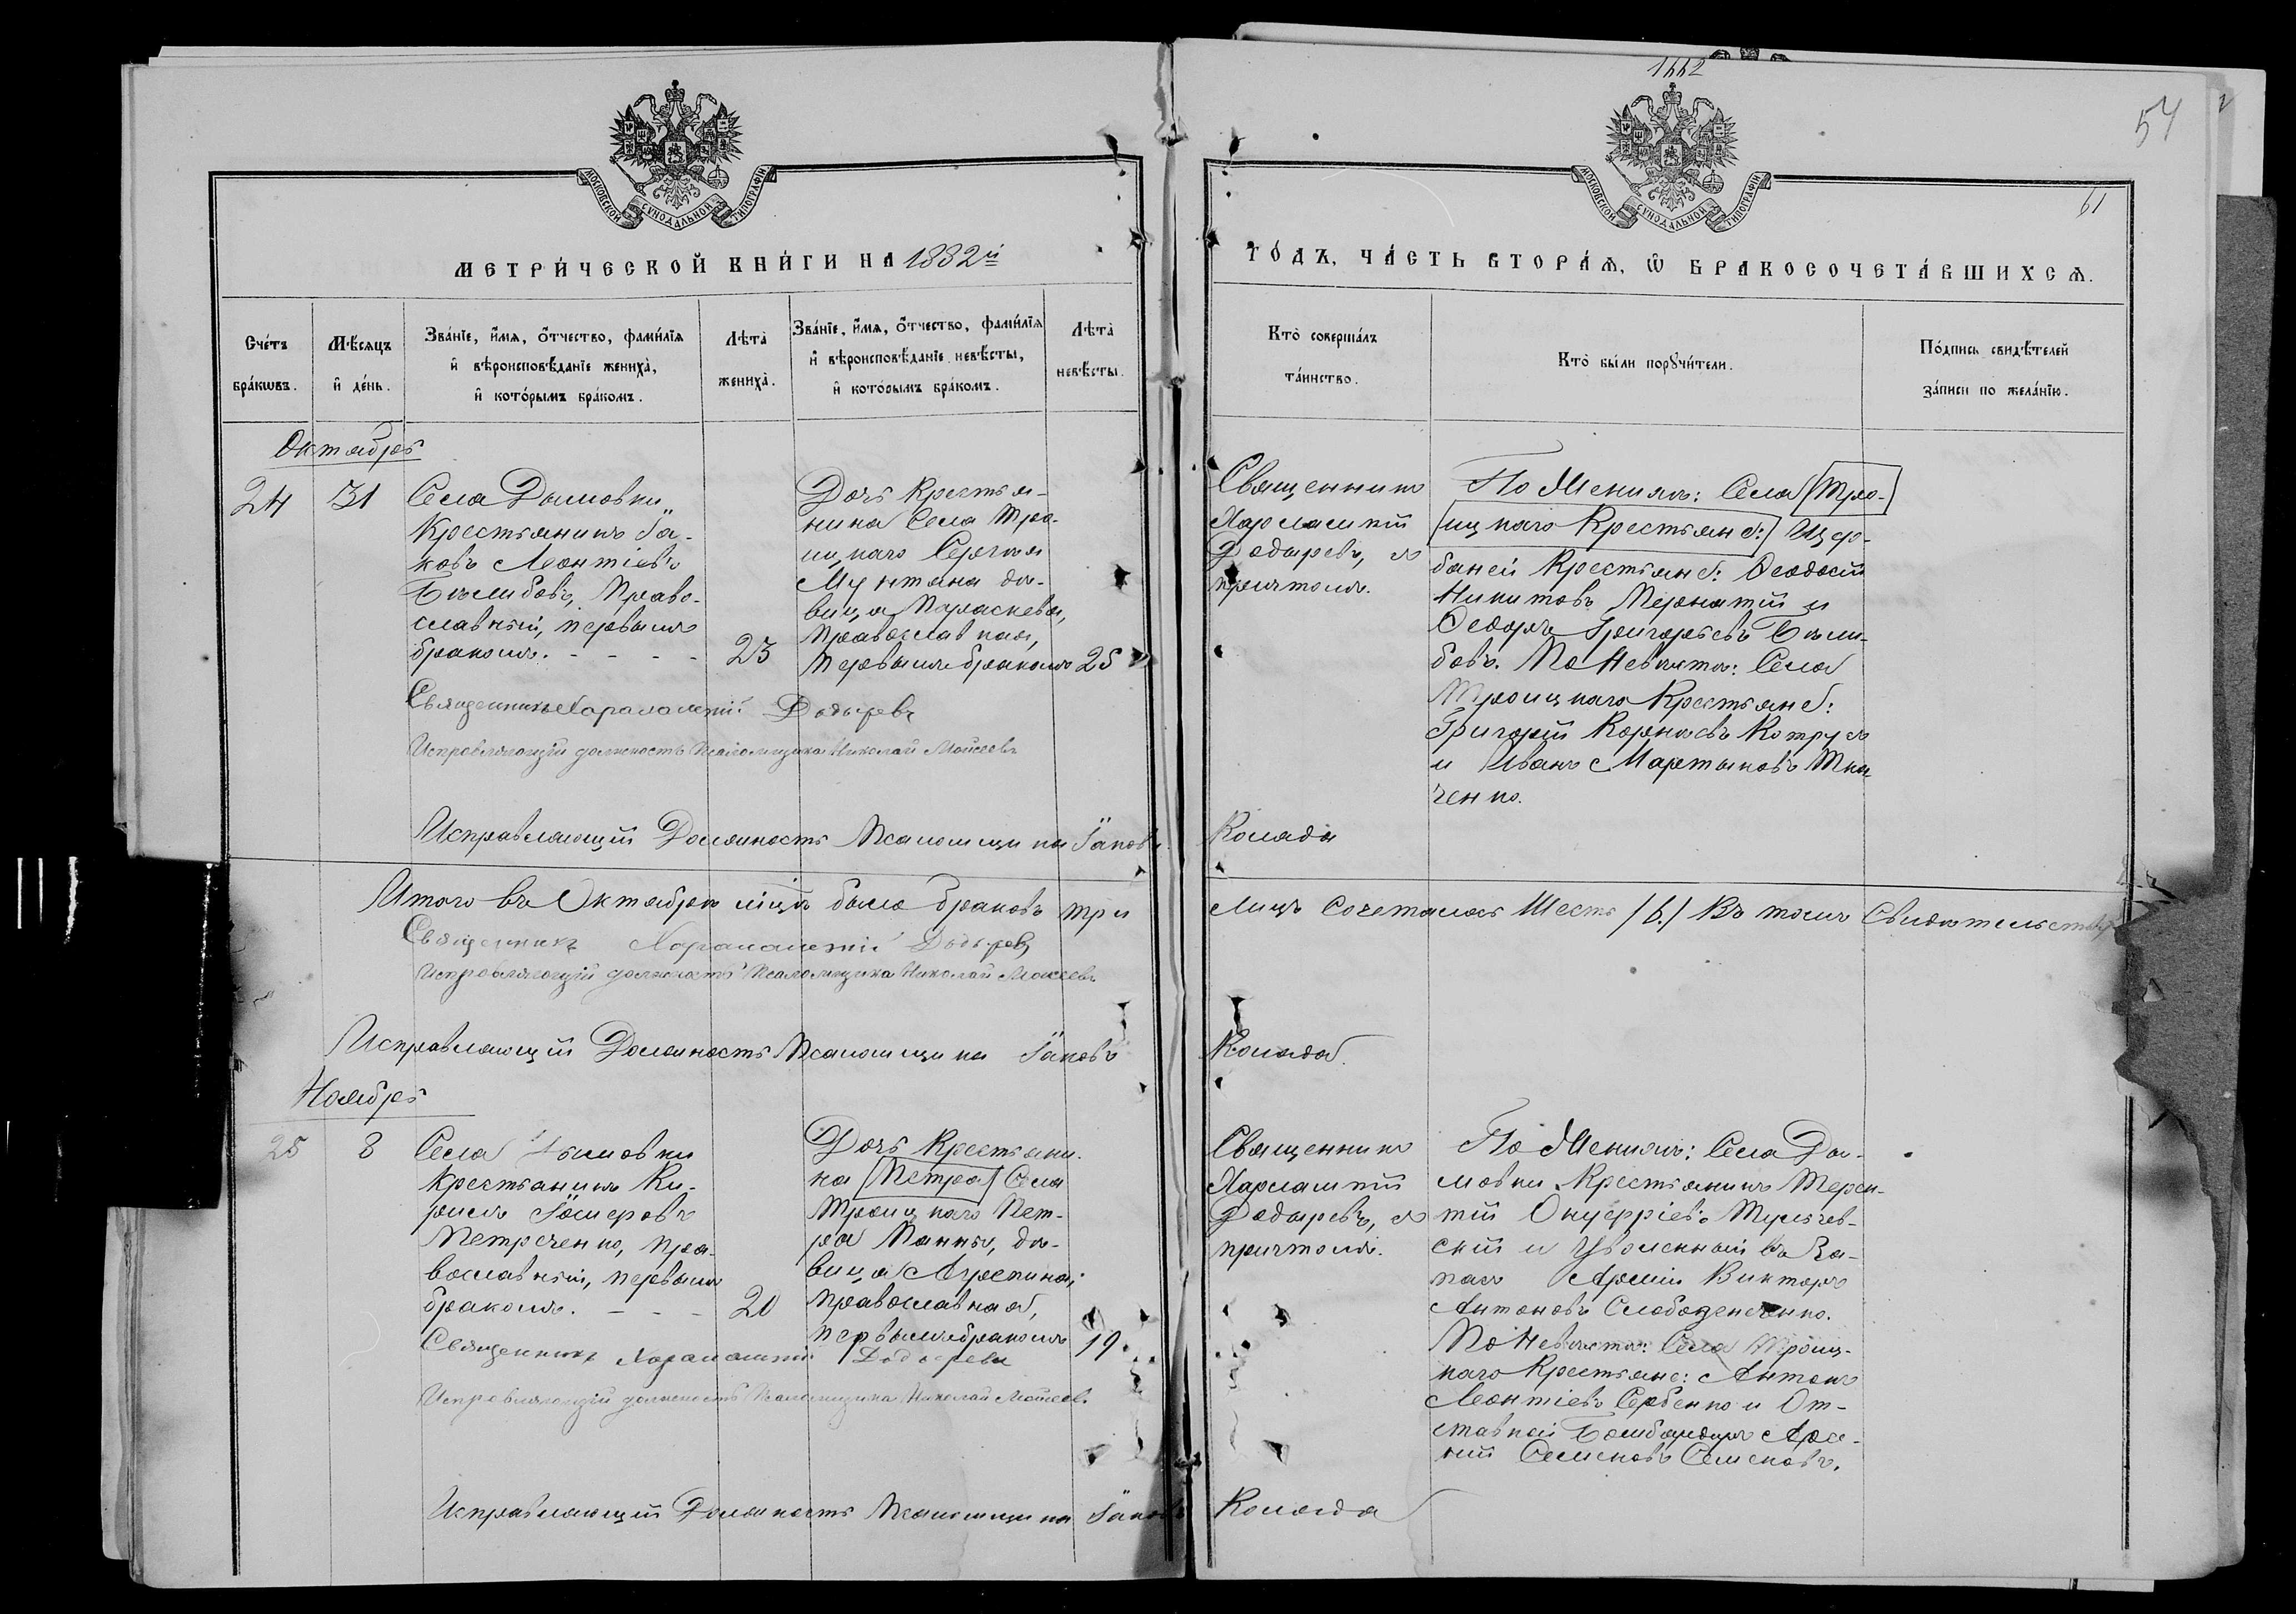 1882
54
61
МОСКОВСКОЙ СѴНОДАЛЬНОЙ ТИПОГРАФІИ
МОСКОВСКОЙ СѴНОДАЛЬНОЙ ТИПОГРАФІИ
МЕТРИ́ЧЕСКОЙ КНИ́ГИ НА 1882й
ГО́ДЪ, ЧА́СТЬ ВТОРА́Ѧ, Ѡ҆ БРАКОСОЧЕТА́ВШИХСѦ.
Сче́тъ бра́кѡвъ.
Мѣ́сяцъ и҆ де́нь.
Зва́нїе, и҆́мя, о҆́тчество, фами́лїя и҆ вѣроисповѣ́данїе жениха̀, и҆ кото́рымъ бра́комъ.
Лѣта̀ жениха̀.
Зва́нїе, и҆́мя, о҆́тчество, фами́лїя и҆ вѣроисповѣ́данїе невѣ́сты, и҆ кото́рымъ бра́комъ.
Лѣта̀ невѣ́сты.
Кто̀ соверша́лъ та́инство.
Кто̀ бы́ли порꙋчи́тели.
По́дпись свидѣ́телей за́писи по жела́нїю.
Октябрь
24
31
Села Дымовки
крестьянинъ Іа-
ковъ Леонтіевъ
Право-
славный, первымъ
бракомъ. - - - -
23
Дочь Крестья-
нина Села Тро-
ицкаго Сергѣя
Мунтяна дѣ-
вица Параскева,
Православная,
первымъ бракомъ
25
Священникъ
Харлампій
Додыревъ, съ
причтомъ.
По Женихѣ: Села Тро-
ицкаго Крестьяне:
баней Крестьяне: Ѳеодосій
Никитовъ и
Ѳеодоръ Григорьевъ
бовъ. По Невѣстѣ: Села
Троицкаго Крестьяне:
Григорій Корнѣевъ
и Иванъ Мартыновъ Тка
ченко.
Священникъ Харалампій Додыревъ
Исправляющій должность Псаломщика Николай Моисеевъ
Исправляющій Должность Псаломщика Іаковъ Коляда
Итого въ Октябрѣ мѣцѣ было браковъ три лицъ сочеталось Шесть /6./ Въ томъ Свидѣтельств
Священникъ Харалампій Додыревъ
Исправляющій должность Псаломщика Николай Моисеевъ
Исправляющій Должность Псаломщика Іаковъ Коляда.
Ноябрь
25
8
Села Дымовки
крестьянинъ Ки-
рилъ
Петренко, пра-
вославный, первымъ
бракомъ. - - -
20
Дочь Крестьяни-
на Петра Села
Троицкаго Пет-
ра Панны, дѣ-
вица Агрепина,
Православная,
первымъ бракомъ
19.
Священникъ
Харлампій
Додыревъ, съ
причтомъ.
По Женихѣ: Села Ды-
мовки Крестьянинъ Терен-
тій
скій и Уволенный въ За-
пасъ Арміи Викторъ
Антоновъ
По Невѣстѣ: Села Троиц-
каго Крестьяне: Антонъ
Леонтіевъ Сербенко и От-
ставной Бомбардиръ Арсе-
ній Семеновъ Семеновъ.
Священникъ Харалампій Додыревъ
Исправляющій должность Псаломщика Николай Моисеевъ
Исправляющій Должность Псаломщика Іаковъ Коляда